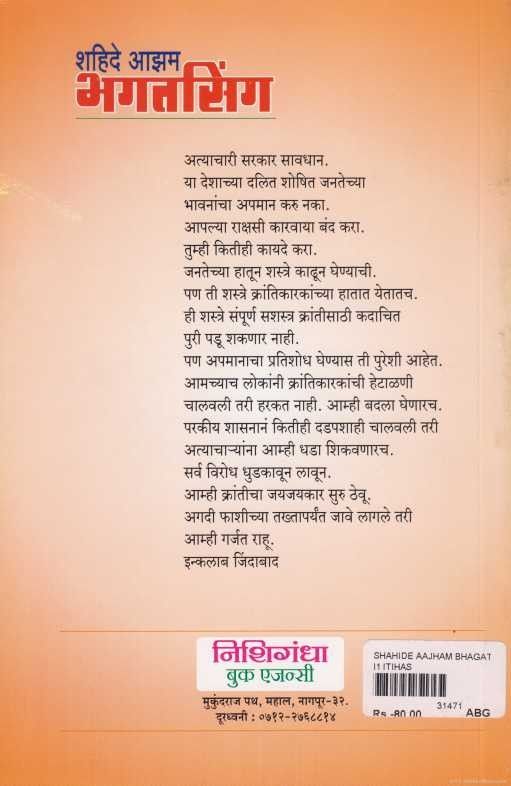 शहिदे आझम
भगतसिंग
अत्याचारी सरकार सावधान.
या देशाच्या दलित शोषित जनतेच्या
भावनांचा अपमान करु नका.
आपल्या राक्षसी कारवाया बंद करा.
तुम्ही कितीही कायदे करा.
जनतेच्या हातून शस्त्रे काढून घेण्याची.
पण ती शस्त्रे क्रांतिकारकांच्या हातात येतातच.
ही शस्त्रे संपूर्ण सशस्त्र क्रांतीसाठी कदाचित
पुरी पडू शकणार नाही.
पण अपमानाचा प्रतिशोध घेण्यास ती पुरेशी आहेत.
आमच्याच लोकांनी क्रांतिकारकांची हेटाळणी
चालवली तरी हरकत नाही. आम्ही बदला घेणारच.
परकीय शासनानं कितीही दडपशाही चालवली तरी
अत्याचाऱ्यांना आम्ही धडा शिकवणारच.
सर्व विरोध धुडकावून लावून.
आम्ही क्रांतीचा जयजयकार सुरु ठेवू.
अगदी फाशीच्या तख्तापर्यंत जावे लागले तरी
आम्ही गर्जत राहू.
इन्कलाब जिंदाबाद
निशिगंधा
बुक एजन्सी
मुकुंदराज पथ, महाल, नागपूर-३२.
दूरध्वनी : ०७१२-२७६८८१४
SHAHIDE AAJHAM BHAGAT
I1 ITIHAS
31471
Rs.-80.00 ABG